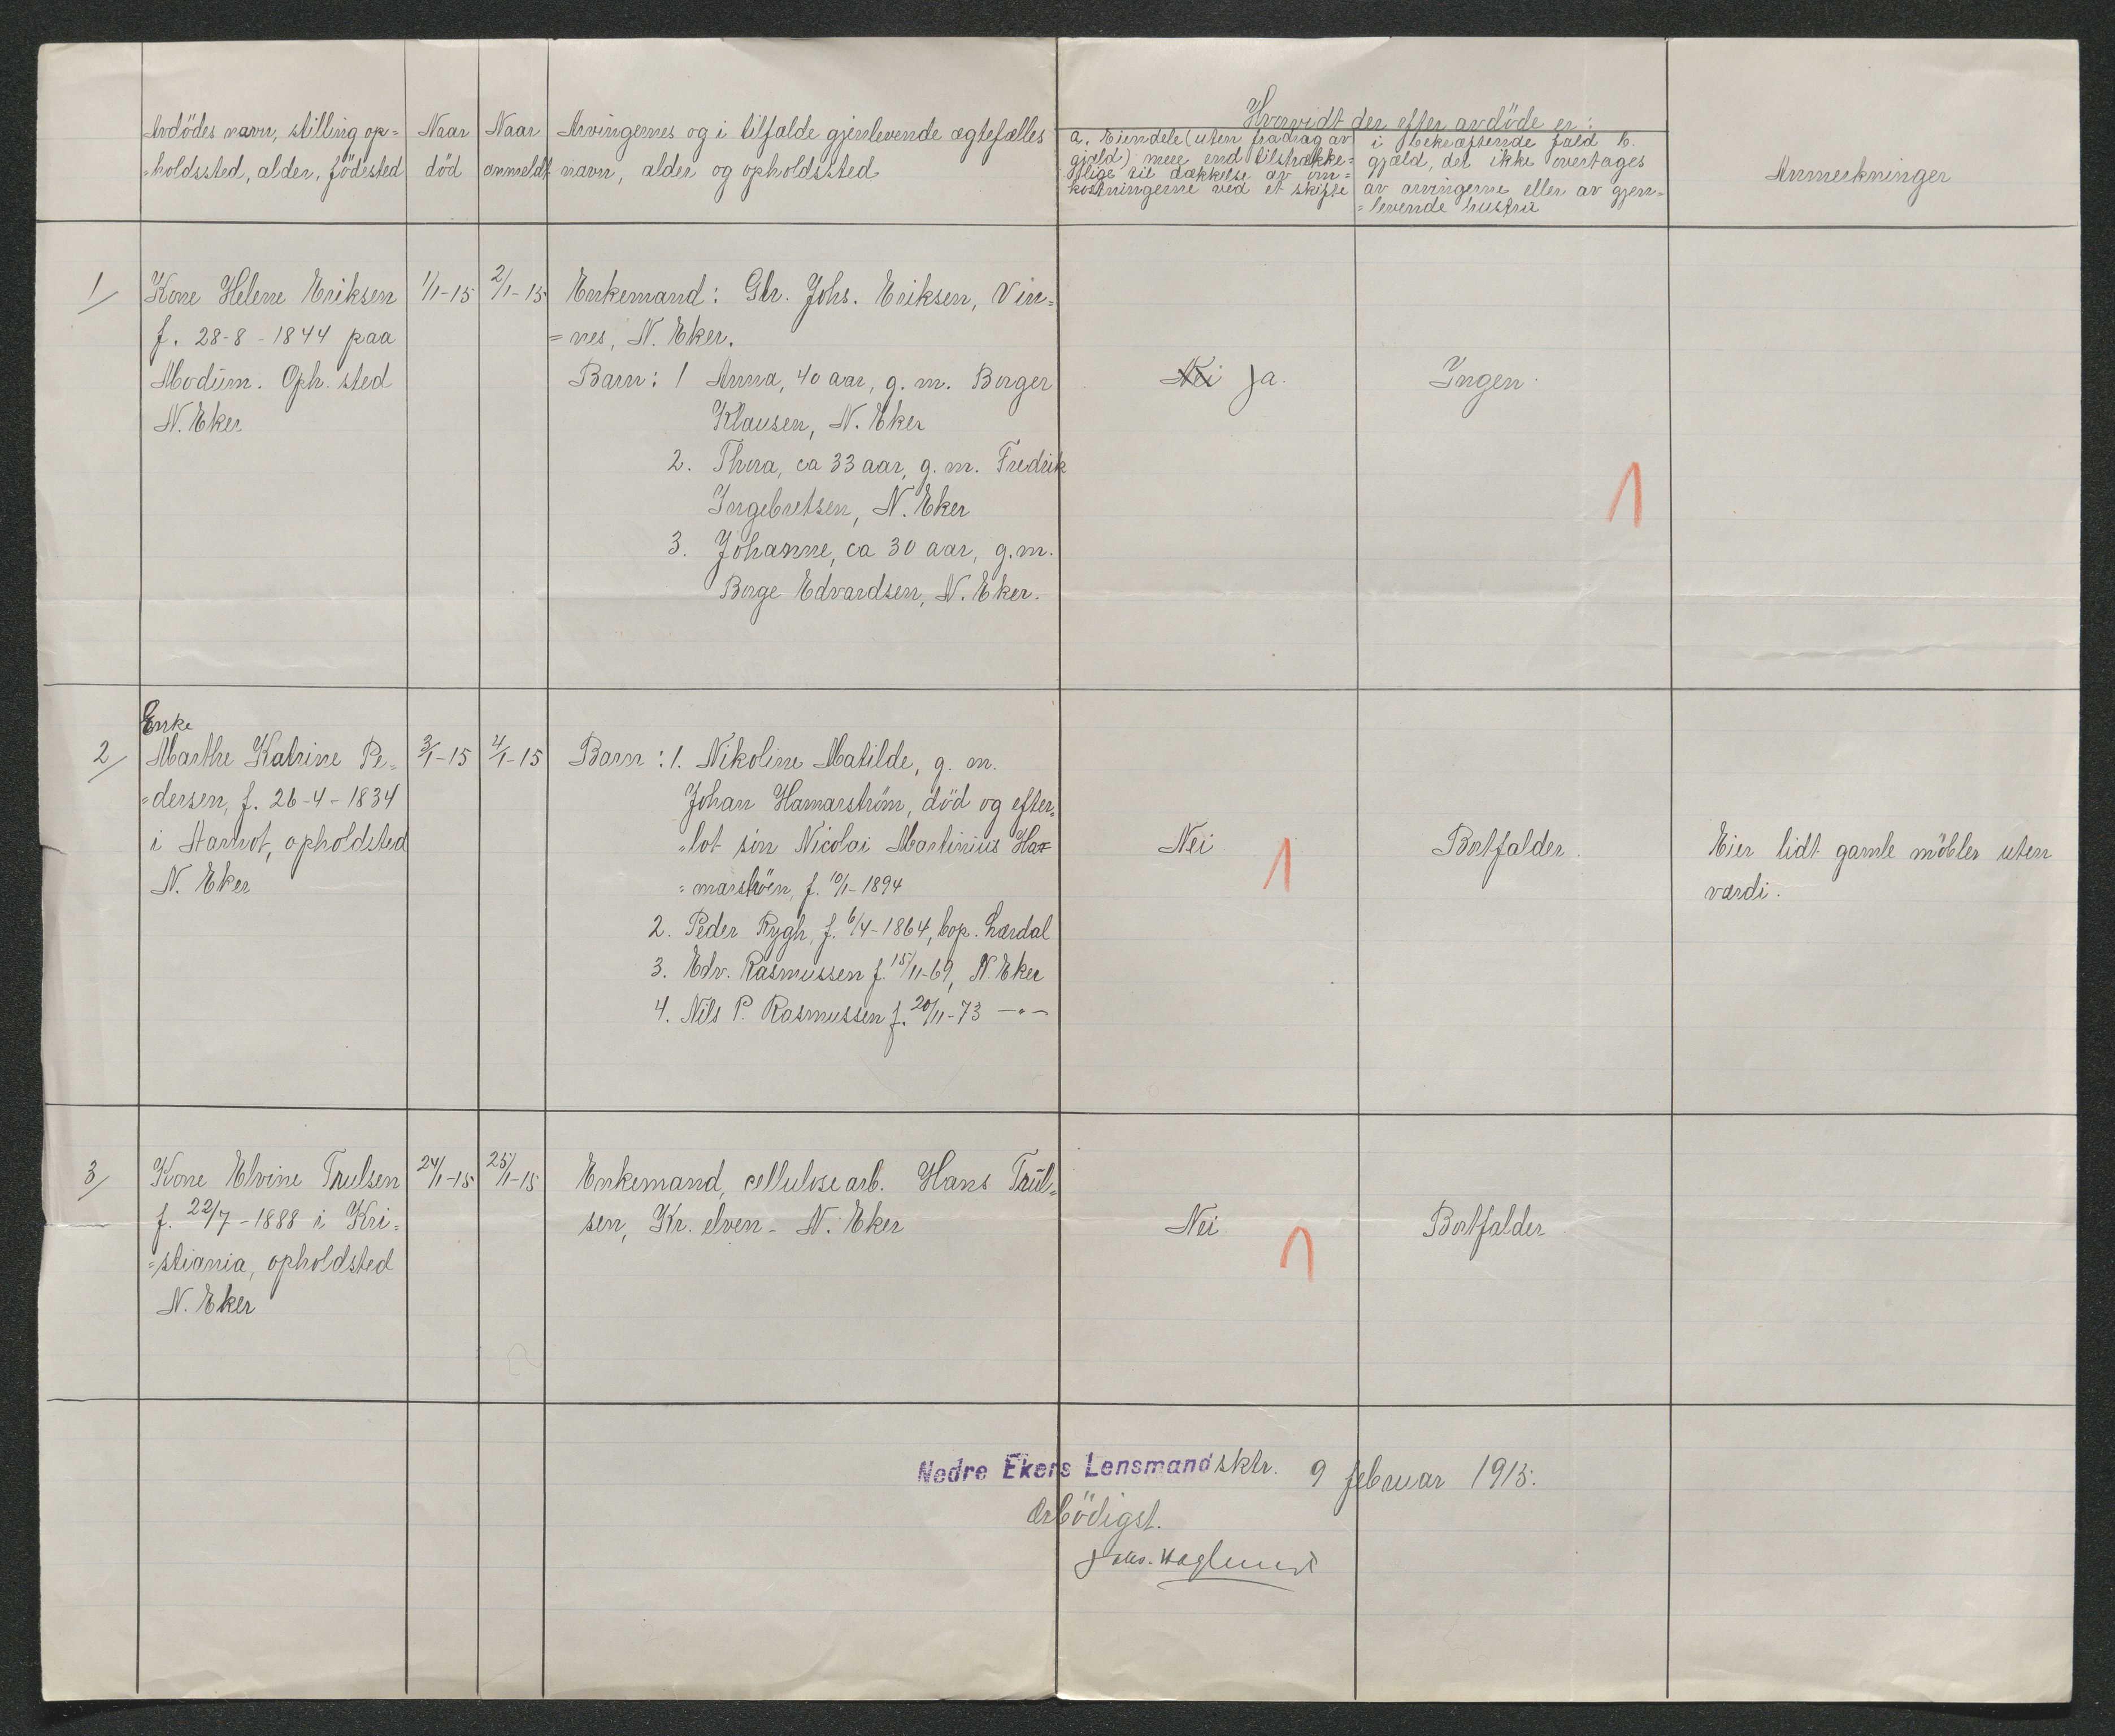 Avdödes navn, stilling op=
=holdssted, alder, födested
Naar
död
Naar
anmeldt
Arvingernes og i tilfælde gjenlevende ægtefælles
navn, alder og opholdssted
Hvorvidt der efter avdöde er:
a. Eiendele (uten fradrag av
gjæld) mere end tilstrække=
=lige til dækkelse av om=
kostningerne ved et skifte
i bekræftende fald b.
gjæld, det ikke overtages
av arvingerne eller av gjen=
=levende hustru
Anmerkninger
1/
Kone Helene Eriksen
f. 28-8-1844 paa
Modum. Oph. sted
N. Eker
1/1-15
2/1-15
Enkemand: Gbr. Johs. Eriksen, Vin=
=nes, N. Eker.
Barn: 1 Anna, 40 aar, g. m. Borger
Klausen, N. Eker
2. Thora, ca 33 aar, g. m. Fredrik
Ingebretsen, N. Eker
3. Johanne, ca 30 aar, g. m.
Borge Edvardsen, N. Eker.
Nei Ja.
Ingen.
1
Enke
2/
Marthe Katrine Pe=
=dersen, f. 26-4-1834
i Aamot, opholdsted
N. Eker
3/1-15
4/1-15
Barn: 1. Nikoline Matilde, g. m.
Johan Hamarström, död og efter=
=lot sön Nicolai Martinius Ha=
=marströn, f. 10/1-1894
2. Peder Rygh, f. 6/4-1864, bop. Lærdal
3. Edv. Rasmussen f. 15/11-69, N. Eker
4. Nils P. Rasmussen f. 20/11-73 —"—
Nei
1
Bortfalder.
Eier lidt gamle möbler uten
værdi.
3/
Kone Elvine Trulsen
f. 22/7-1888 i Kri=
=stiania, opholdsted
N. Eker
24/1-15
25/1-15
Enkemand, cellulosearb. Hans Trul=
sen, Kr. elven - N. Eker
Nei
1
Bortfalder
Nedre Ekers Lensmandsktr. 9 februar 1915.
Ærbödigst.